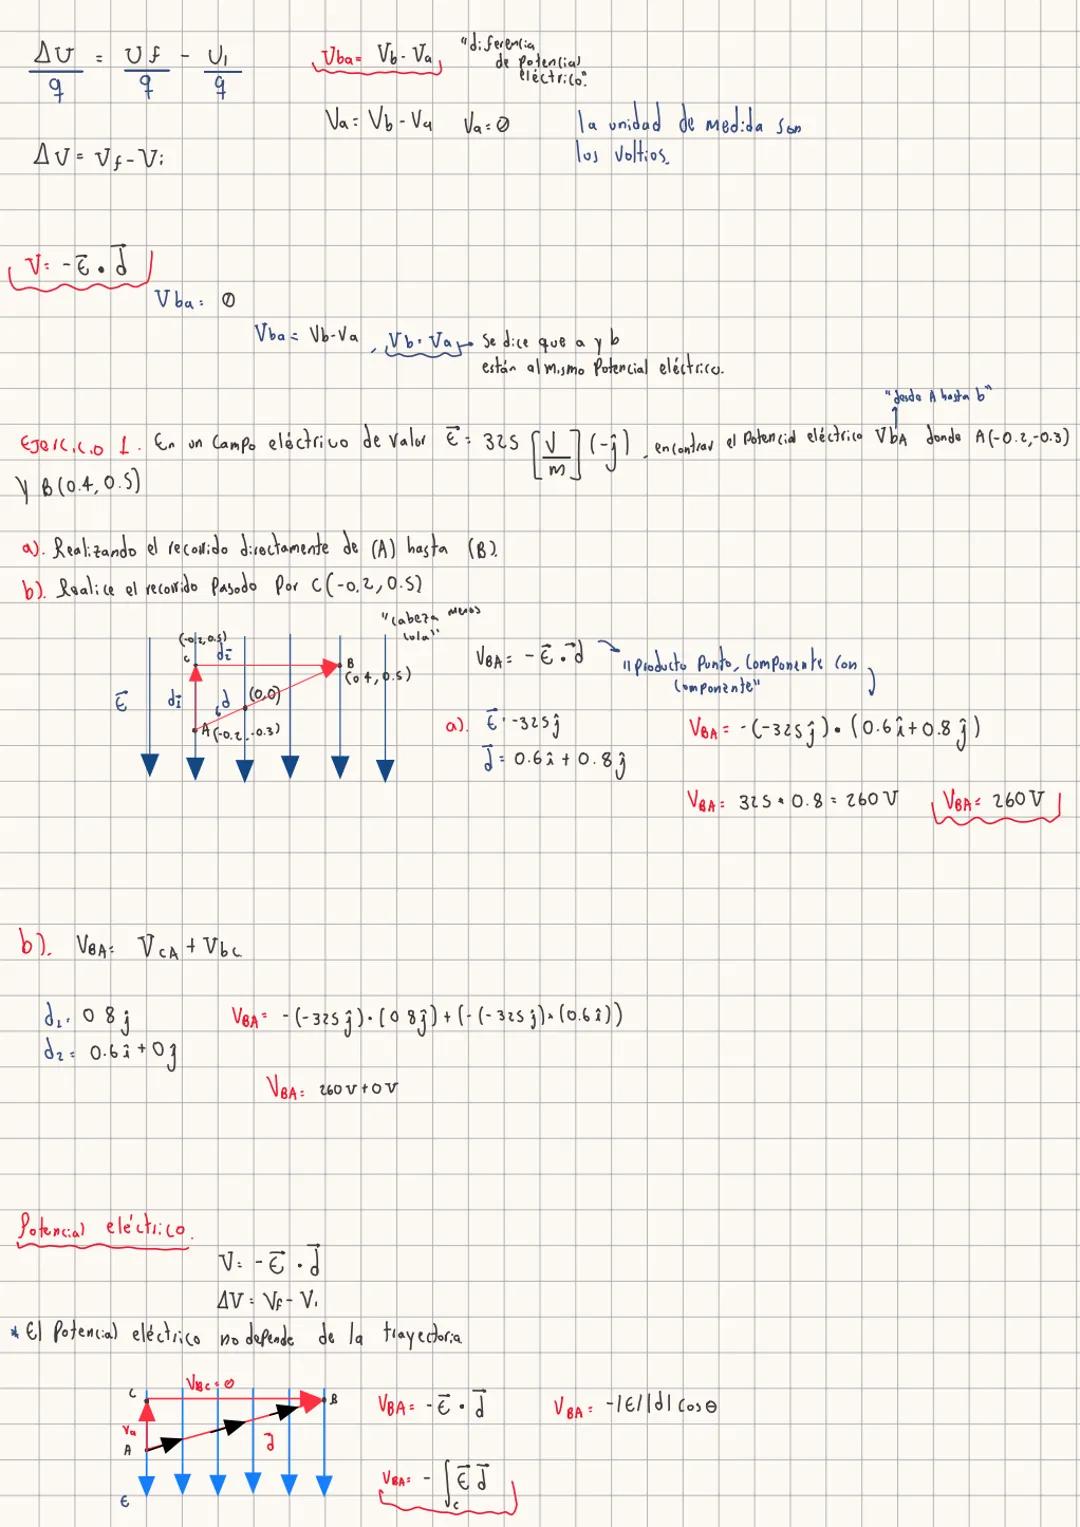 ΔU/q = Uf/q - Ui/q
Vba = Vb - Va "diferencia de potencial eléctrico".
Va = Vb - Va Va = 0
la unidad de medida son los voltios.
ΔV = Vf - Vi
V = -E⃗ • d⃗
Vba = 0
Vba = Vb-Va, Vb = Va → Se dice que a y b
están al mismo Potencial eléctrico.
"desde A hasta b"
Ejercicio 1. En un Campo eléctrico de Valor E⃗ = 325 [V/m] (-ĵ), encontrar el Potencial eléctrico VbA donde A(-0.2,-0.3)
y B(0.4, 0.5)
a). Realizando el recorrido directamente de (A) hasta (B).
b). Realice el recorrido Pasado Por C(-0.2, 0.5)
"Cabeza menos Cola"
(-0.2, 0.5)
C d⃗2 B
(0.4, 0.5)
E⃗ d⃗1 d (0,0)
A(-0.2,-0.3)
VBA = -E⃗ • d⃗ "Producto Punto, Componente Con Componente"
a). E⃗ = -325ĵ
d⃗ = 0.6î + 0.8ĵ
VBA = -(-325ĵ) • (0.6î + 0.8ĵ)
VBA = 325 * 0.8 = 260 V VBA = 260 V
b). VBA = VCA + Vbc
d1 = 0.8ĵ
d2 = 0.6î + 0ĵ
VBA = -(-325ĵ) • (0.8ĵ) + (-(-325ĵ) • (0.6î))
VBA = 260V + 0V
Potencial eléctrico.
V = -E⃗ • d⃗
ΔV = Vf - Vi
* El Potencial eléctrico no depende de la trayectoria
C VBC = 0 B
Va
A d⃗
E
VBA = -E⃗ • d⃗ VBA = -|E||d| Cosθ
VBA = -∫c E⃗ d⃗